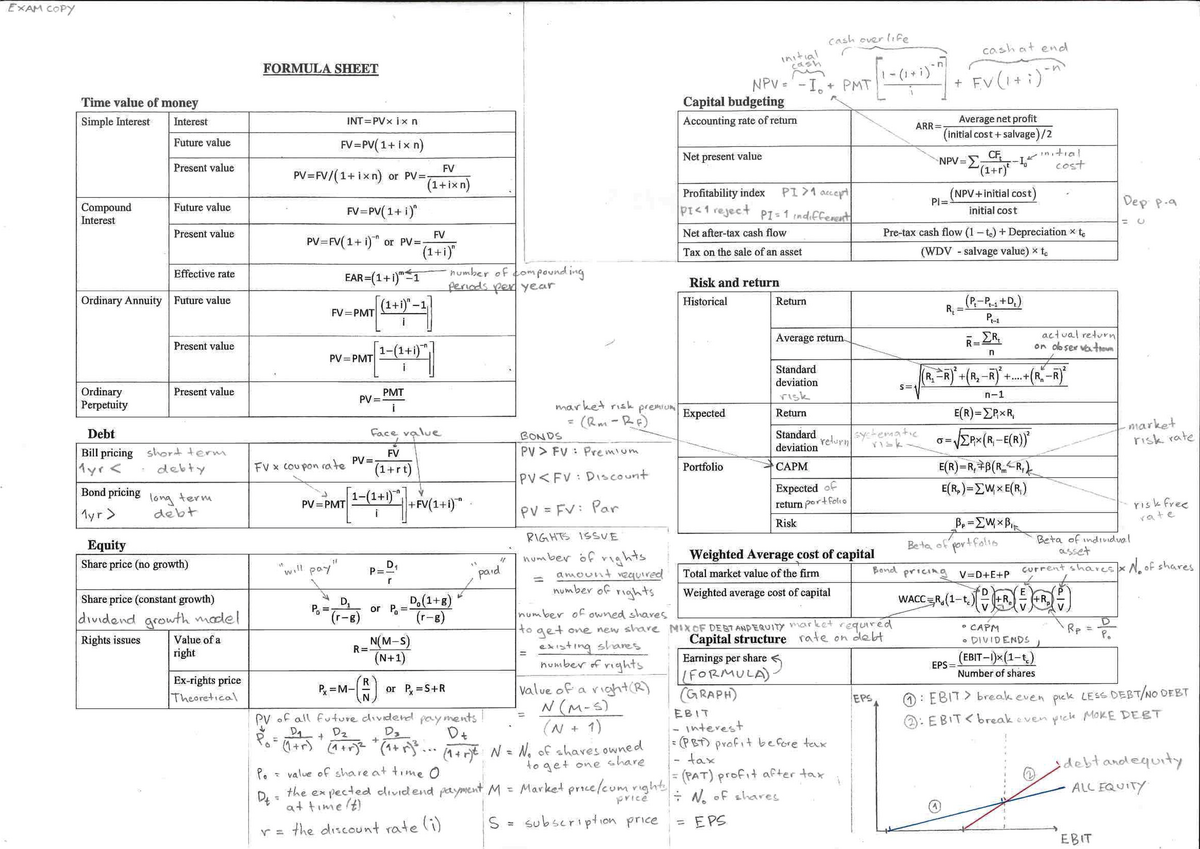 EXAM COPY
FORMULA SHEET
Time value of money
Simple Interest
Interest
INT=PV× i× n
Future value
FV=PV(1+ i× n)
Present value
PV=FV/(1+ i×n) or PV=FV/(1+i×n)
Compound Interest
Future value
FV=PV(1+ i)ⁿ
Present value
PV=FV(1+ i)⁻ⁿ or PV=FV/(1+i)ⁿ
Effective rate
EAR=(1+i)ᵐ−1
number of compounding
periods per year
Ordinary Annuity
Future value
FV=PMT[((1+i)ⁿ−1)/i]
Present value
PV=PMT[(1−(1+i)⁻ⁿ)/i]
Ordinary Perpetuity
Present value
PV=PMT/i
Debt
Face value
Bill pricing short term
1yr < debty
FV x coupon rate
PV=FV/(1+r t)
Bond pricing long term
1yr > debt
PV=PMT[(1−(1+i)⁻ⁿ)/i]+FV(1+i)⁻ⁿ
BONDS
PV > FV : Premium
PV < FV : Discount
PV = FV : Par
Equity
Share price (no growth)
"will pay"
P=D₁/r
"paid"
Share price (constant growth)
dividend growth model
P₀=D₁/(r−g) or P₀=D₀(1+g)/(r−g)
Rights issues
Value of a right
R=N(M−S)/(N+1)
Ex-rights price
Theoretical
Pₓ=M−(R/N) or Pₓ=S+R
RIGHTS ISSUE
number of rights
= amount required / number of rights
number of owned shares
to get one new share
= existing shares / number of rights
Value of a right (R)
= N(M−S) / (N + 1)
PV of all future dividend payments
P₀ = D₁/(1+r) + D₂/(1+r)² + D₃/(1+r)³ ... Dt/(1+r)ᵗ
P₀ = value of share at time 0
Dt = the expected dividend payment
at time (t)
r = the discount rate (i)
N = Nₒ of shares owned
to get one share
M = Market price/cum rights
price
S = subscription price
initial cash
cash over life
cash at end
NPV = −I₀ + PMT[(1−(1+i)⁻ⁿ)/i] + FV(1+i)⁻ⁿ
Capital budgeting
Accounting rate of return
ARR=Average net profit/((initial cost + salvage)/2)
Net present value
NPV=∑CFt/(1+r)ᵗ−I₀
initial cost
Profitability index PI >1 accept
PI<1 reject PI=1 indifferent
PI=(NPV+initial cost)/initial cost
Dep p.a
=
Net after-tax cash flow
Pre-tax cash flow (1 – tc) + Depreciation × tc
Tax on the sale of an asset
(WDV - salvage value) × tc
Risk and return
Historical
Return
Rt=(Pt−Pt-1+Dt)/Pt-1
Average return
R̄=∑Rt/n
actual return
on observation
Standard deviation
risk
s=√(((R₁−R̄)²+(R₂−R̄)²+....+(Rn−R̄)²)/(n−1))
market risk premium
= (Rm − RF)
Expected
Return
E(R)=∑Pi×Ri
Standard deviation return
systematic risk
σ=√(∑Pi×(Ri−E(R))²)
market
risk rate
Portfolio
CAPM
E(R)=Rf+β(Rm−Rf)
Expected of
return portfolio
E(Rp)=∑Wi×E(Ri)
risk free
rate
Risk
βp=∑Wi×βi
Beta of portfolio
Beta of individual
asset
Weighted Average cost of capital
Total market value of the firm
Bond pricing
V=D+E+P
current shares x Nₒ of shares
Weighted average cost of capital
WACC=Rd(1−tc)(D/V)+Re(E/V)+Rp(P/V)
MIX OF DEBT AND EQUITY
market required
rate on debt
∘ CAPM
∘ DIVIDENDS
Rp = D/P₀
Capital structure
Earnings per share
(FORMULA)
EPS=(EBIT−I)×(1−tc)/Number of shares
(GRAPH)
EBIT
− interest
= (PBT) profit before tax
− tax
= (PAT) profit after tax
÷ Nₒ of shares
= EPS
EPS
①: EBIT > break even pick LESS DEBT/NO DEBT
②: EBIT < break even pick MORE DEBT
②
debt and equity
ALL EQUITY
①
EBIT